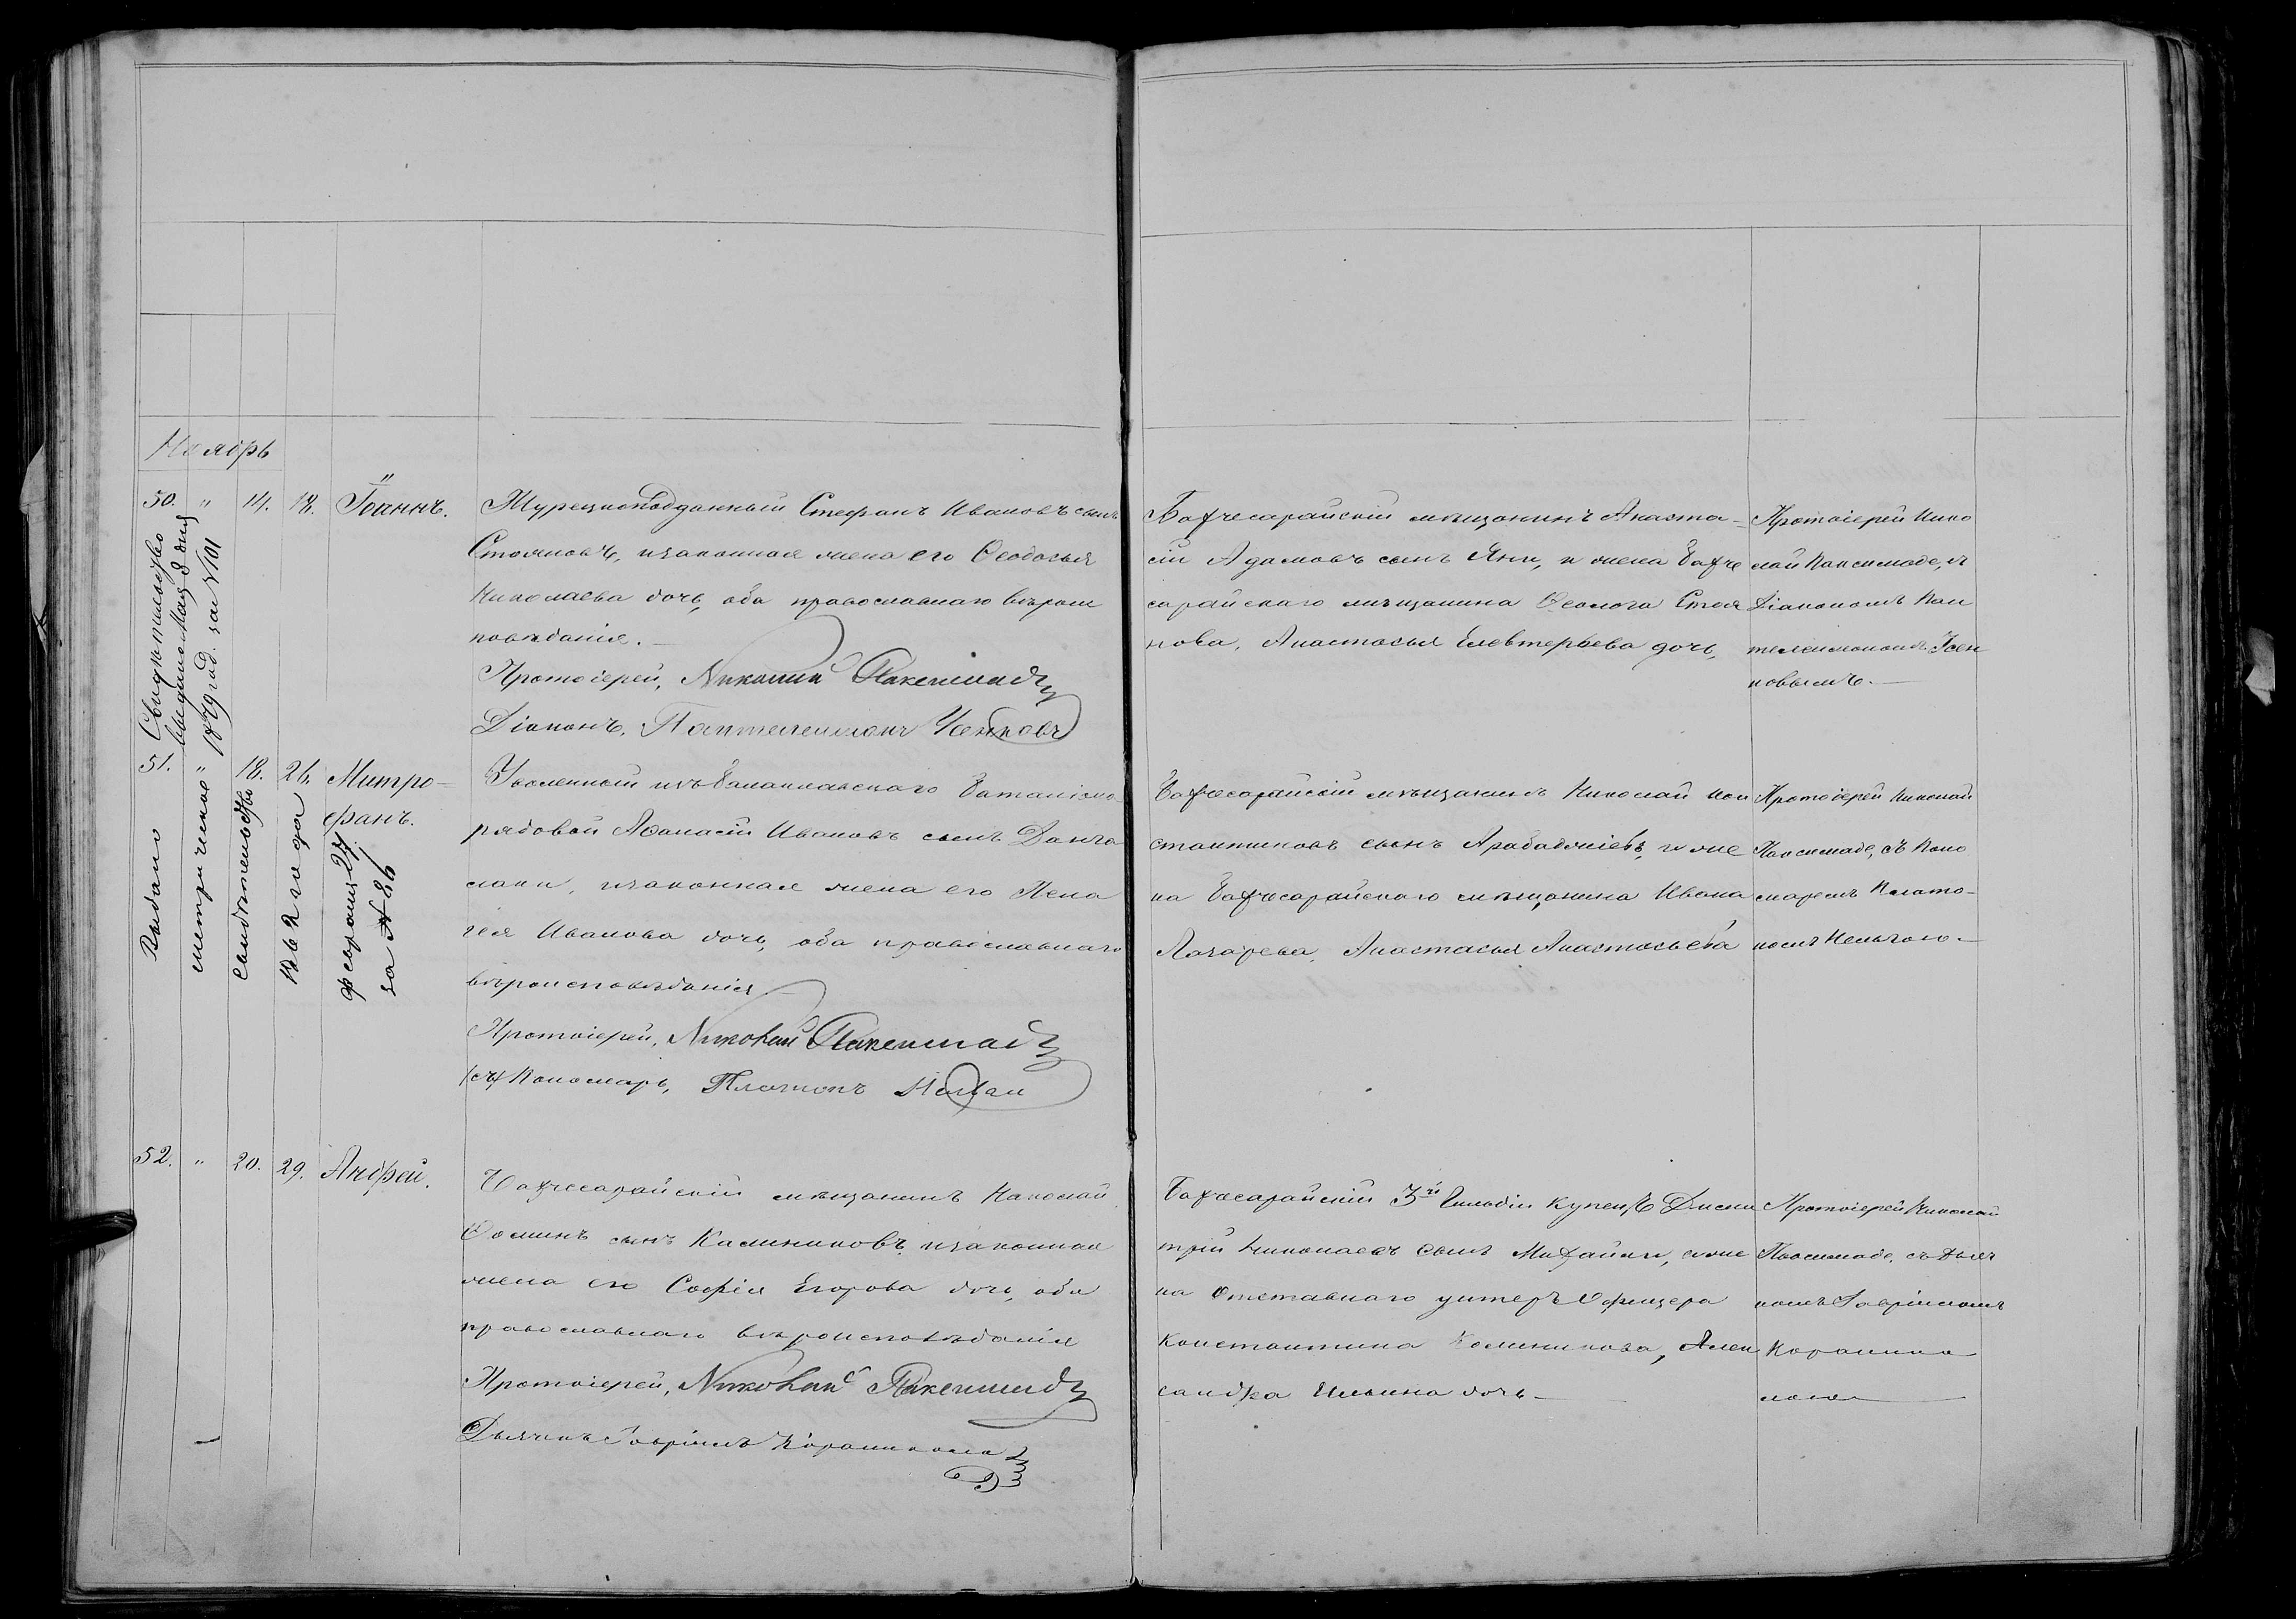 Ноябрь
50. " 14. 18. Іоаннъ.
Турецкоподданный Стефанъ Ивановъ сынъ
Стояновъ, и законная жена его Ѳеодосья
Николаева дочь, оба православнаго вѣроис
повѣданія.—
Протоіерей, Николай Паксимадъ
Діаконъ, Пантелеимонъ Ченковъ
Бахчесарайскій мѣщанинъ Анаста-
сій Адамовъ сынъ Яни, и жена Бахче
сарайскаго мѣщанина Стоя
нова, Анастасья Елевтерьева дочь,
Протоіерей Нико
лай Паксимаде, съ
Діакономъ Пан
телеимономъ
новымъ.—
Свидѣтельство
выдано Мая 8 дня
1879 год. за № 101
51. " 18. 26. Митро-
фанъ.
Уволенный изъ Балаклавскаго Баталіона
рядовой Аѳанасій Ивановъ сынъ
и законная жена его Пела
гея Иванова дочь, оба православнаго
вѣроисповѣданія—
Протоіерей, Николай Паксимадъ
Пономарь, Платонъ
Бахчесарайскій мѣщанинъ Николай Кон
стантиновъ сынъ Арабаджіевъ, и же
на Бахчесарайскаго мѣщанина Ивана
Лазарева, Анастасья Анастасьева
Протоіерей Николай
Паксимаде, съ Поно
маремъ Плато-
номъ
Выдано
метрическое
свидѣтельство
1882 года
февраля 27
за № 86
52. " 20. 29. Андрей.
Бахчесарайскій мѣщанинъ Николай
Ѳоминъ сынъ Калиниковъ, и законная
жена его Софія Егорова дочь, оба
православнаго вѣроисповѣданія
Протоіерей, Николай Паксимадъ
Дьячекъ Гавріилъ
Бахчесарайскій 3й Гильдіи купецъ Дими
трій Николаевъ сынъ Михайли, и же
на Отставнаго унтеръ Офицера
Константина Калиникова, Алек
сандра Ильина дочь—
Протоіерей Николай
Паксимаде, съ Дьяч
комъ Гавріиломъ